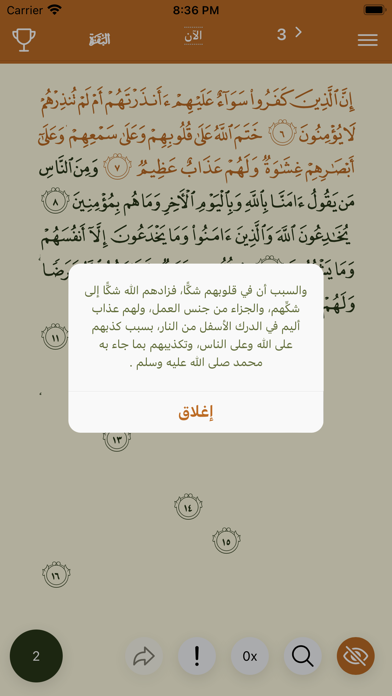 Carrier 8:36 PM
البقرة الآن 3
إِنَّ ٱلَّذِينَ كَفَرُوا۟ سَوَآءٌ عَلَيْهِمْ ءَأَنذَرْتَهُمْ أَمْ لَمْ تُنذِرْهُمْ
لَا يُؤْمِنُونَ ٦ خَتَمَ ٱللَّهُ عَلَىٰ قُلُوبِهِمْ وَعَلَىٰ سَمْعِهِمْ وَعَلَىٰٓ
أَبْصَٰرِهِمْ غِشَٰوَةٌ وَلَهُمْ عَذَابٌ عَظِيمٌ ٧ وَمِنَ ٱلنَّاسِ
مَن يَقُولُ ءَامَنَّا بِٱللَّهِ وَبِٱلْيَوْمِ ٱلْءَاخِرِ وَمَا هُم بِمُؤْمِنِينَ ٨
يُخَٰدِعُونَ ٱللَّهَ وَٱلَّذِينَ ءَامَنُوا۟ وَمَا يَخْدَعُونَ إِلَّآ أَنفُسَهُمْ
وَلَهُمْ
والسبب أن في قلوبهم شكًّا، فزادهم الله شكًّا إلى
شكِّهم، والجزاء من جنس العمل، ولهم عذاب
أليم في الدرك الأسفل من النار، بسبب كذبهم
على الله وعلى الناس، وتكذيبهم بما جاء به
محمد صلى الله عليه وسلم .
إغلاق
١١
١٣
١٤
١٥
١٦
2 ! 0x